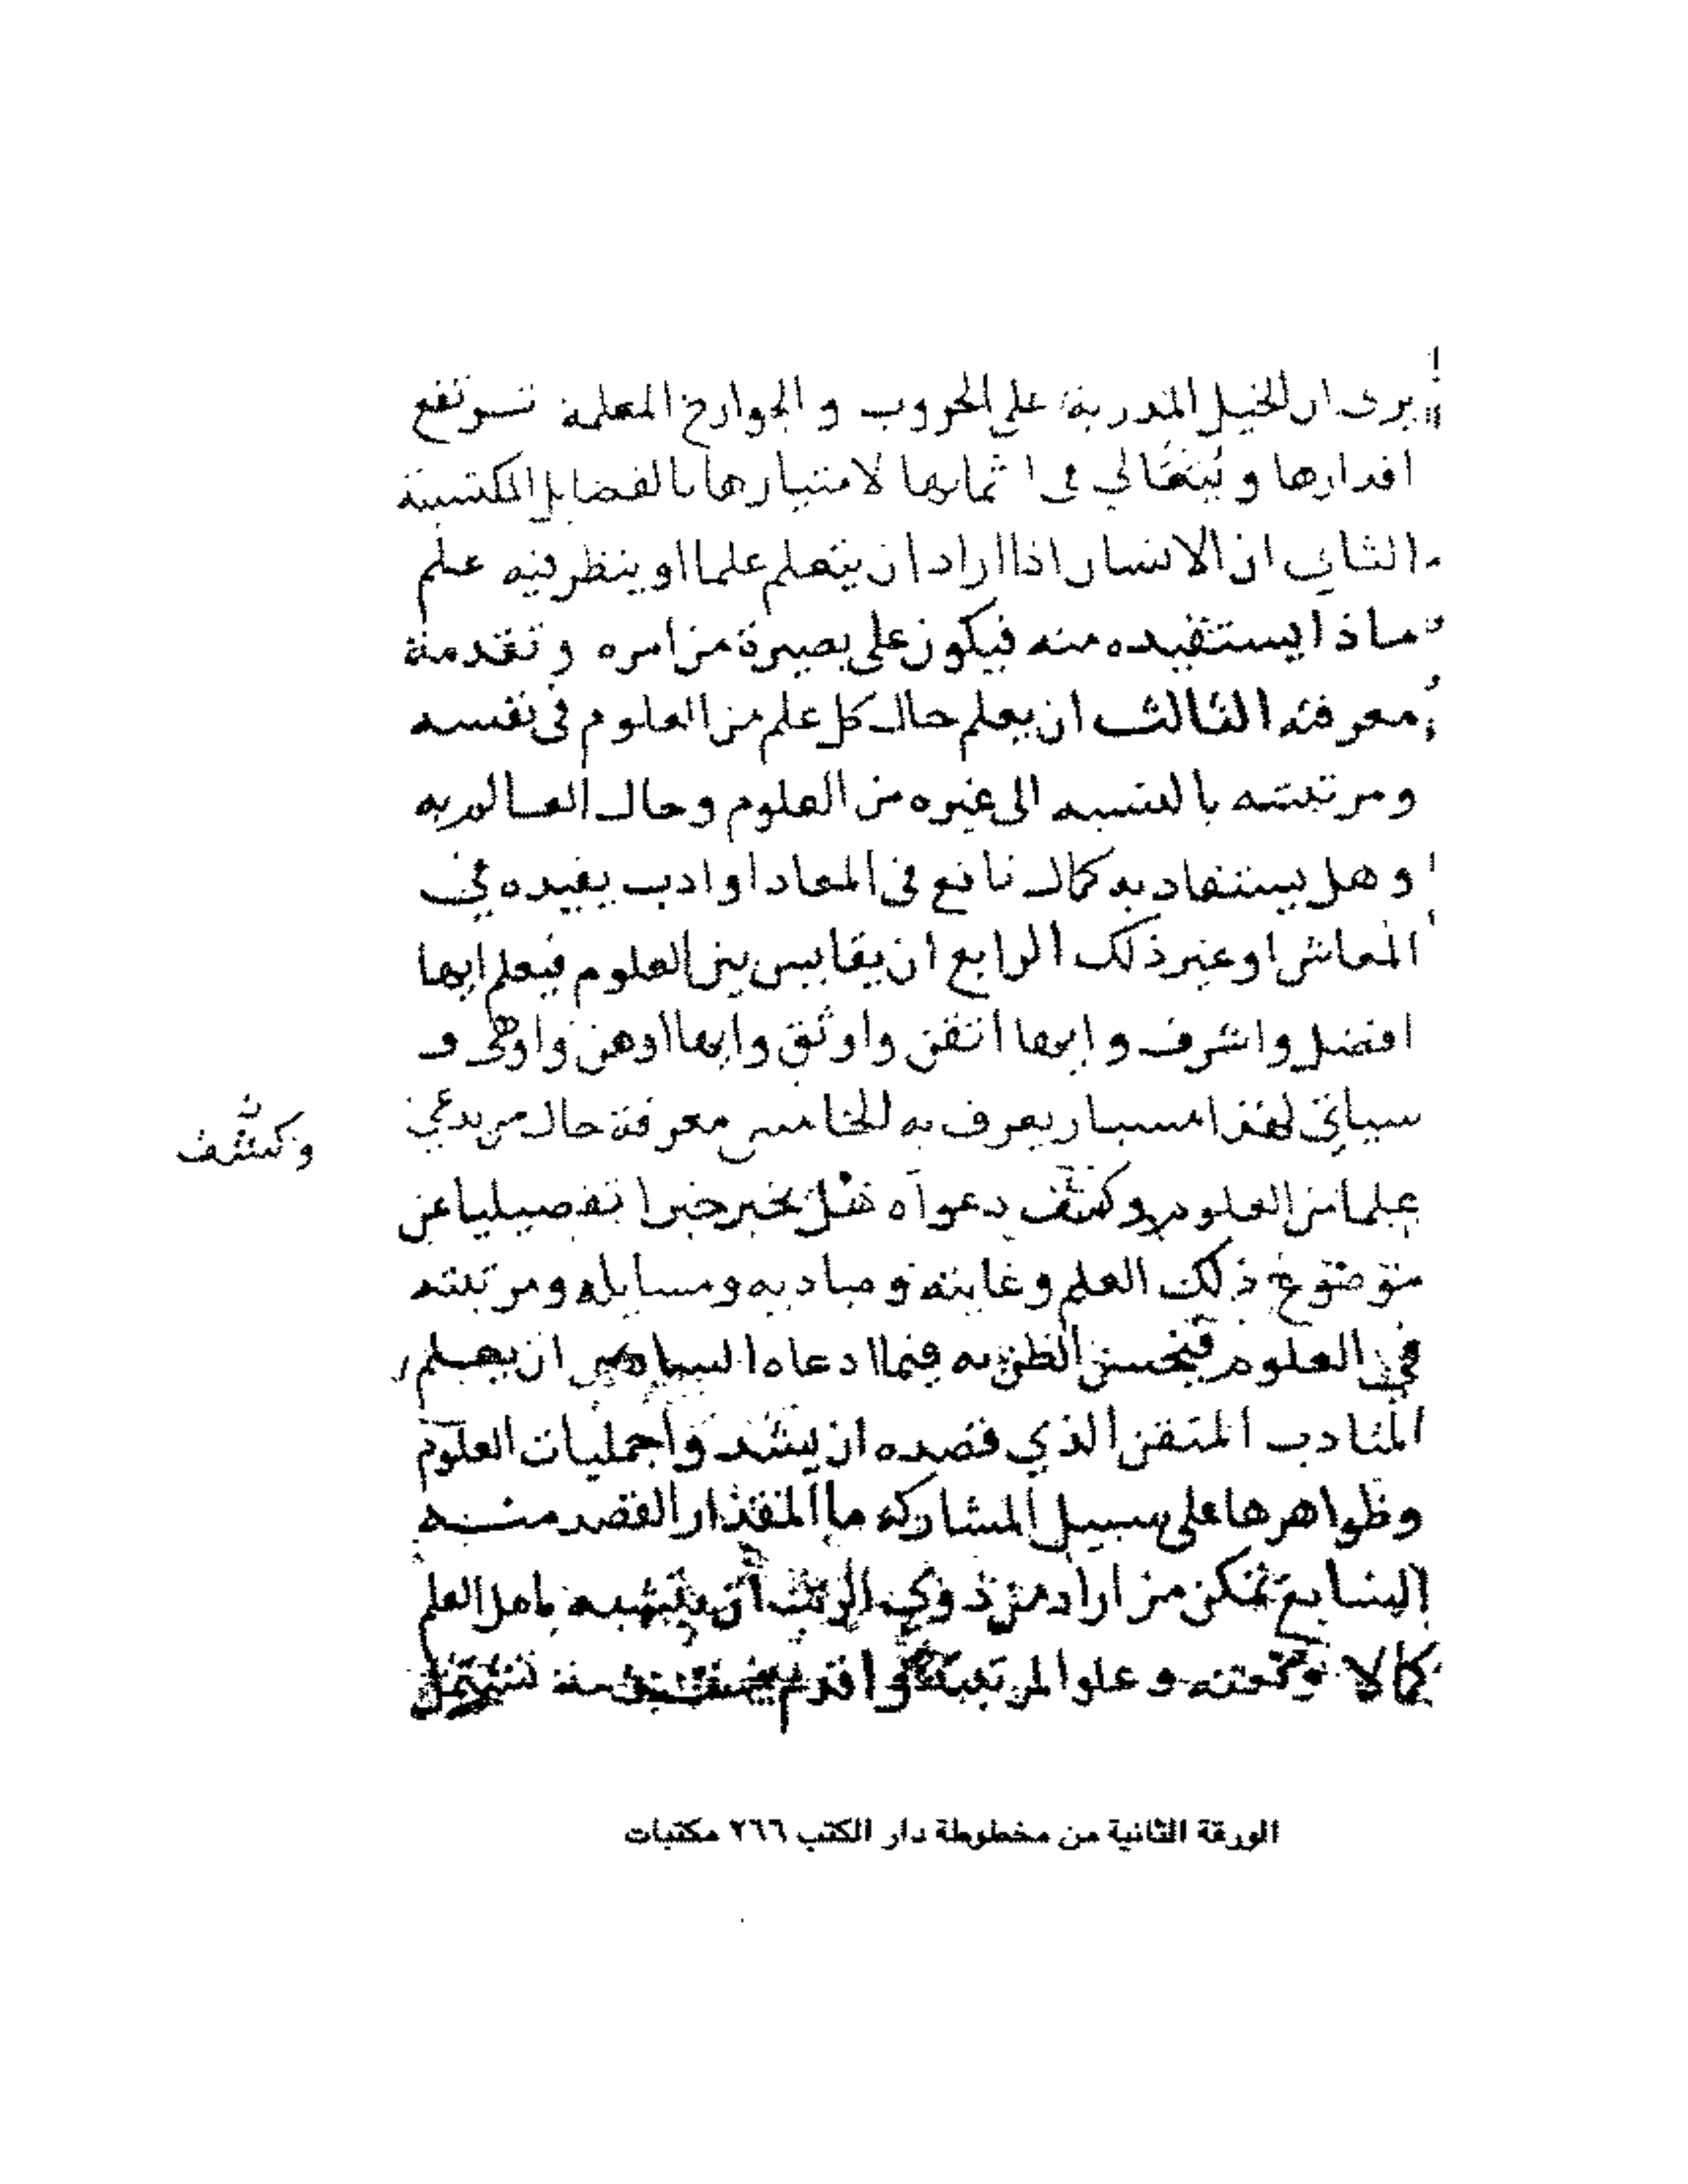 يرى ان الخيل المدربة على الحروب والجوارح المعلمة تسرتفع
اقدارها ويتغالي في اثمانها لامتيازها بالفضايل المكتسبة
الثاني ان الانسان اذا اراد ان يتعلم علما او ينظر فيه علم
ماذا يستفيده منه فيكون على بصيرة من امره وتقدمة
معرفته الثالث ان يعلم حال كل علم من العلوم في نفسه
ومرتبته بالنسبه الى غيره من العلوم وحال العالم به
وهل يستفاد به كمال نافع في المعاد او ادب يفيده في
المعاش او غير ذلك الرابع ان يقايس بين العلوم فيعلم ايها
افضل واشرف وايها اتقن واوثق وايها اوهن واوهى و
سياتي لهذا مسبار يعرف به الخامس معرفة حال من يدعي
وكشف
علما من العلوم وكشف دعواه هل يخبر خبرا تفصيليا عن
موضوع ذلك العلم وغايته ومباديه ومسايله ومرتبته
في العلوم فيحسن الظن به فيما ادعاه السادس ان يعلم
المتادب المتفنن الذي قصده ان يشدو اجمليات العلوم
وظواهرها على سبيل المشاركه ما المقدار القصد منه
السابع تمكن من اراد من ذوي الرتب ان يتشبه باهل العلم
كمالا وعلو المرتبة
الورقة الثانية من مخطوطة دار الكتب ٢٦٦ مكتبات